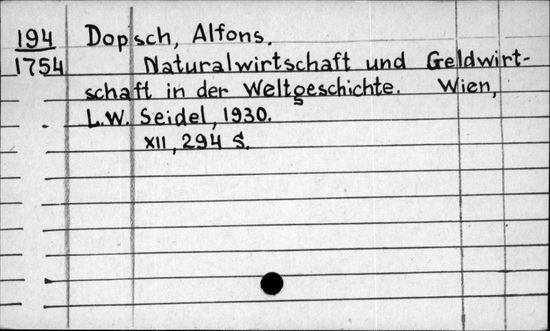 194 Dopsch, Alfons.
1754 Naturalwirtschaft und Geldwirt-
schaft in der Weltgeschichte. Wien,
L.W. Seidel, 1930.
XII, 294 S.